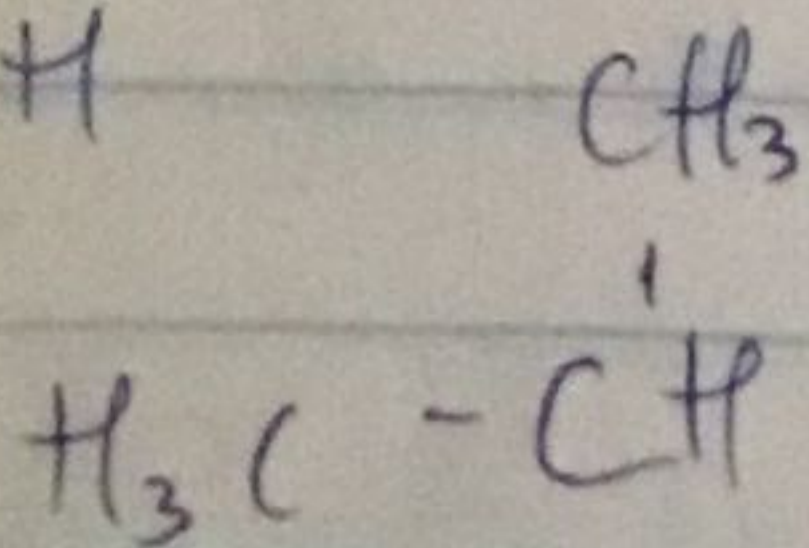 H CH3
|
H3C - CH